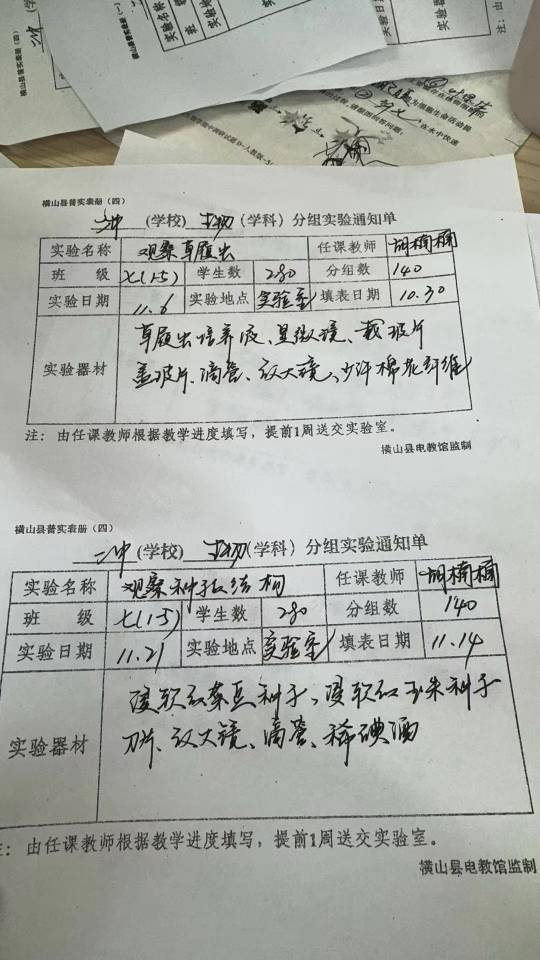 横山县普实表册（四）
实验名称
为细胞生命活动提
在水中快速
横山县普实表册（四）
二中（学校）生物（学科）分组实验通知单
实验名称 观察草履虫 任课教师 胡楠楠
班 级 七(1-5) 学生数 280 分组数 140
实验日期 11.6 实验地点 实验室 填表日期 10.30
实验器材 草履虫培养液、显微镜、载玻片
盖玻片、滴管、放大镜、少许棉花纤维
注：由任课教师根据教学进度填写，提前1周送交实验室。
横山县电教馆监制
横山县普实表册（四）
二中（学校）生物（学科）分组实验通知单
实验名称 观察种子的结构 任课教师 胡楠楠
班 级 七(1-5) 学生数 280 分组数 140
实验日期 11.21 实验地点 实验室 填表日期 11.14
实验器材 浸软的菜豆种子、浸软的玉米种子
刀片、放大镜、滴管、稀碘酒
注：由任课教师根据教学进度填写，提前1周送交实验室。
横山县电教馆监制